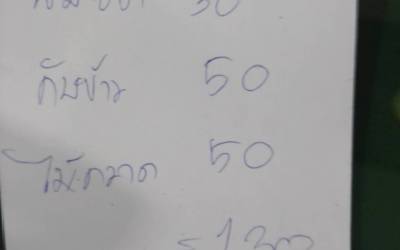 30
กับข้าว 50
ไม้กวาด 50
= 130